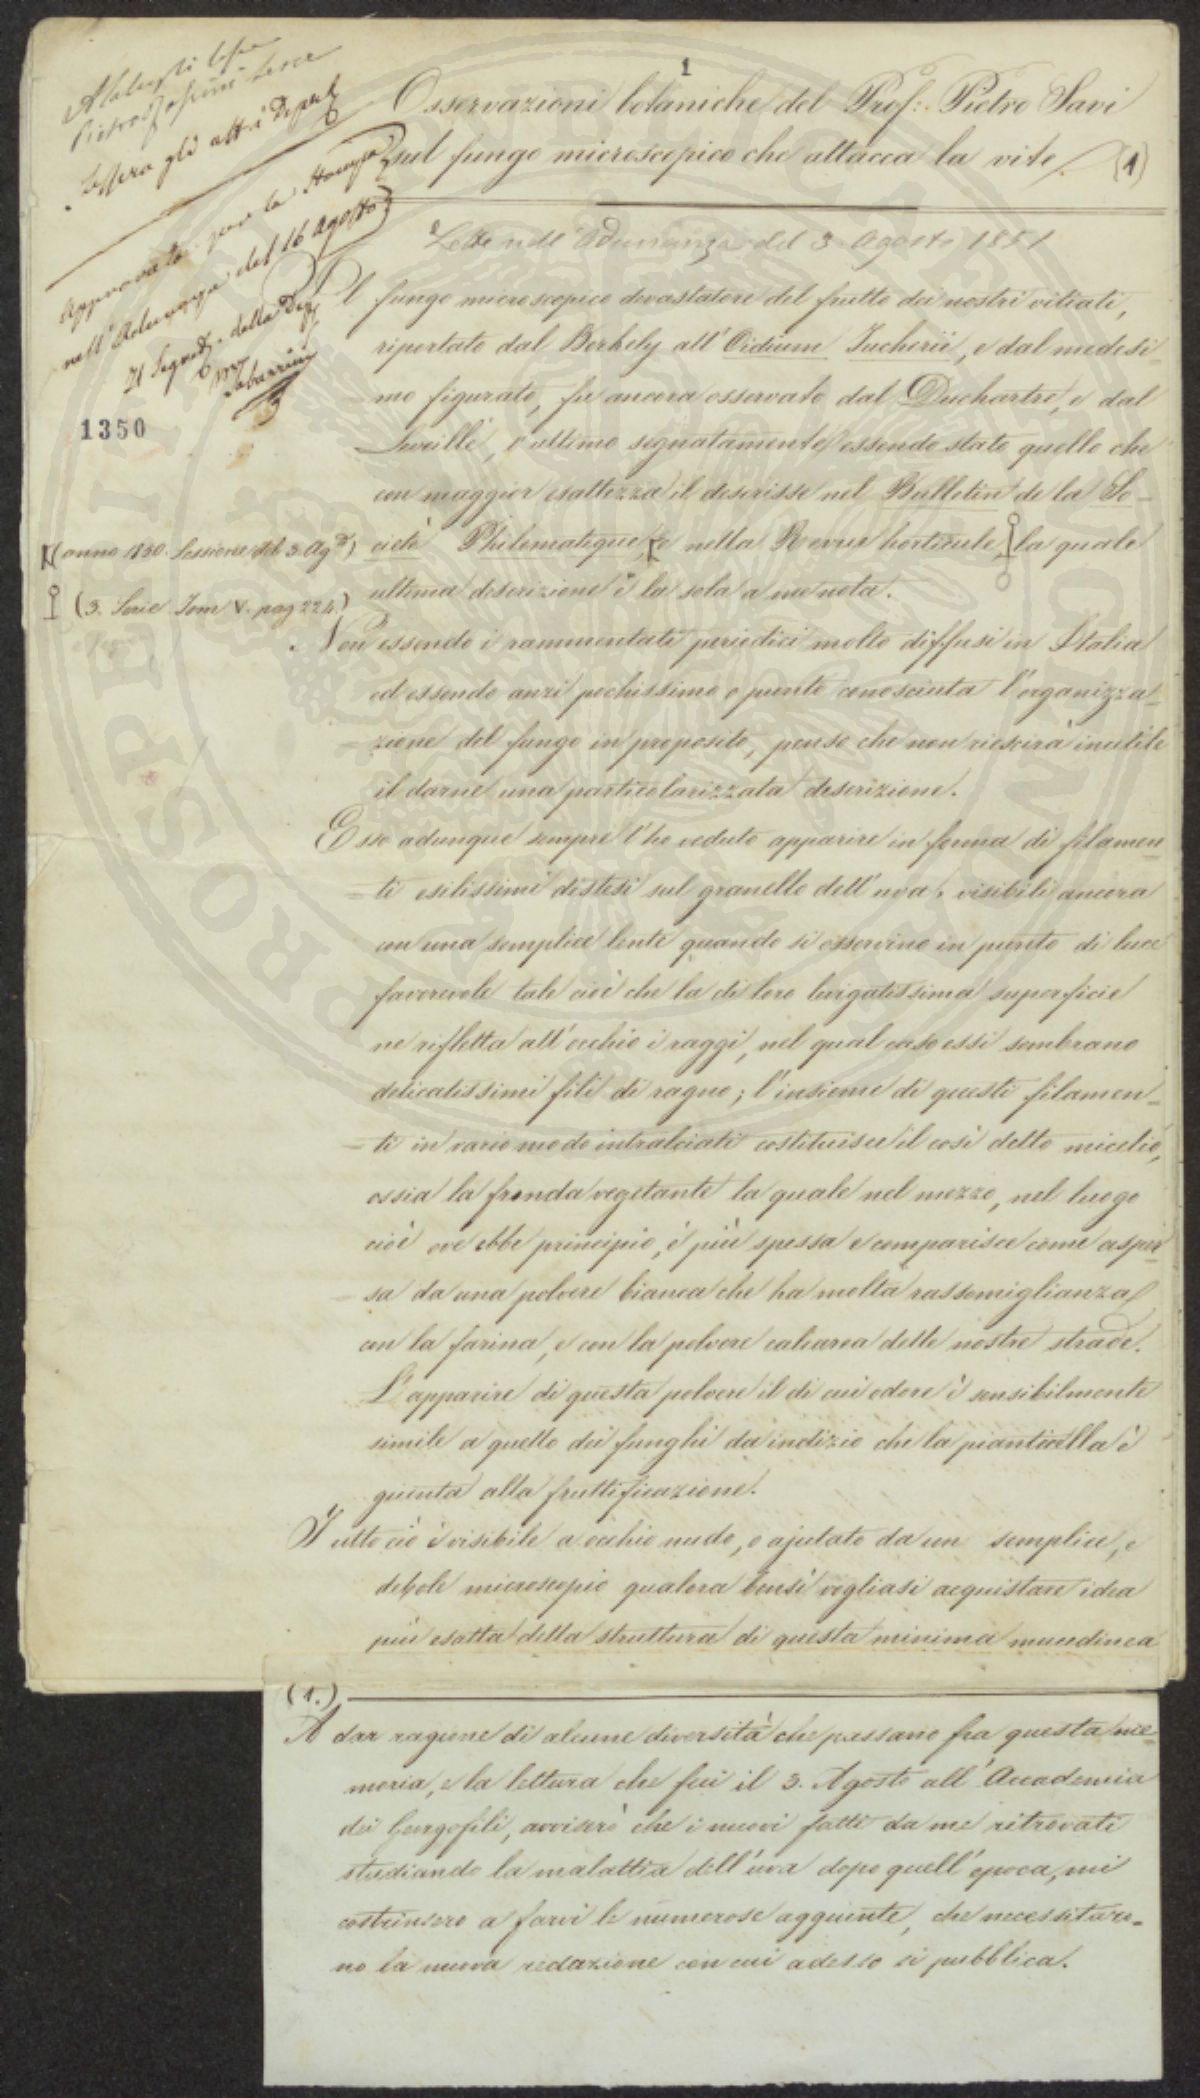 1
Osservazioni botaniche del Prof: Pietro Savi
sul fungo microscopico che attacca la vite. (1)
Letta nell'Adunanza del 3 Agosto 1851
Approvata per la Stampa
nell'Adunanza del 16 Agosto
Il Segret. delle
1350
Il fungo microscopico devastatore del frutto dei nostri vitiati,
riportato dal Berkely all'Oidium Tucherii, e dal medesi-
-mo figurato, fu ancora osservato dal Duchartre, e dal
Leveillé, l'ultimo segnatamente essendo stato quello che
con maggior esattezza il descrisse nel Bulletin de la So-
cieté Philomatique, e nella Revue horticule, la quale
(anno 1850. Sessione del 3. Ag.)
ultima descrizione è la sola a me nota.
(3. Serie Tom V. pag 224.)
Non essendo i rammentati periodici molto diffusi in Italia
ed essendo anzi pochissimo o punto conosciuta l'organizza-
-zione del fungo in proposito, penso che non riescirà inutile
il darne una particolarizzata descrizione.
Esso adunque sempre l'ho veduto apparire in forma di filamen-
-ti esilissimi distesi sul granello dell'uva, visibili ancora
con una semplice lente quando si osservino in punto di luce
favorevole tale cioè che la di loro levigatissima superficie
ne rifletta all'occhio i raggi, nel qual caso essi sembrano
delicatissimi fili di ragno; l'insieme di questi filamen-
-ti in vario modo intralciati costituisce il così detto micelio,
ossia la fronda vegetante la quale nel mezzo, nel luogo
cioè ove ebbe principio, è più spessa e comparisce come asper-
-sa da una polvere bianca che ha molta rassomiglianza
con la farina, e con la polvere calcarea delle nostre strade.
L'apparire di questa polvere il di cui odore è sensibilmente
simile a quello dei funghi da indizio che la pianticella è
giunta alla fruttificazione.
Tutto ciò è visibile a occhio nudo, o ajutato da un semplice, e
debole microscopio qualora bensì vogliasi acquistare idea
più esatta della struttura di questa minima mucedinea
(1.)
A dar ragione di alcune diversità che passano fra questa me-
moria, e la lettura che feci il 3. Agosto all'Accademia
dei Georgofili, avviserò che i nuovi fatti da me ritrovati
studiando la malattia dell'uva dopo quell'epoca, mi
costrinsero a farvi le numerose aggiunte, che necessitaro-
no la nuova redazione con cui adesso si pubblica.